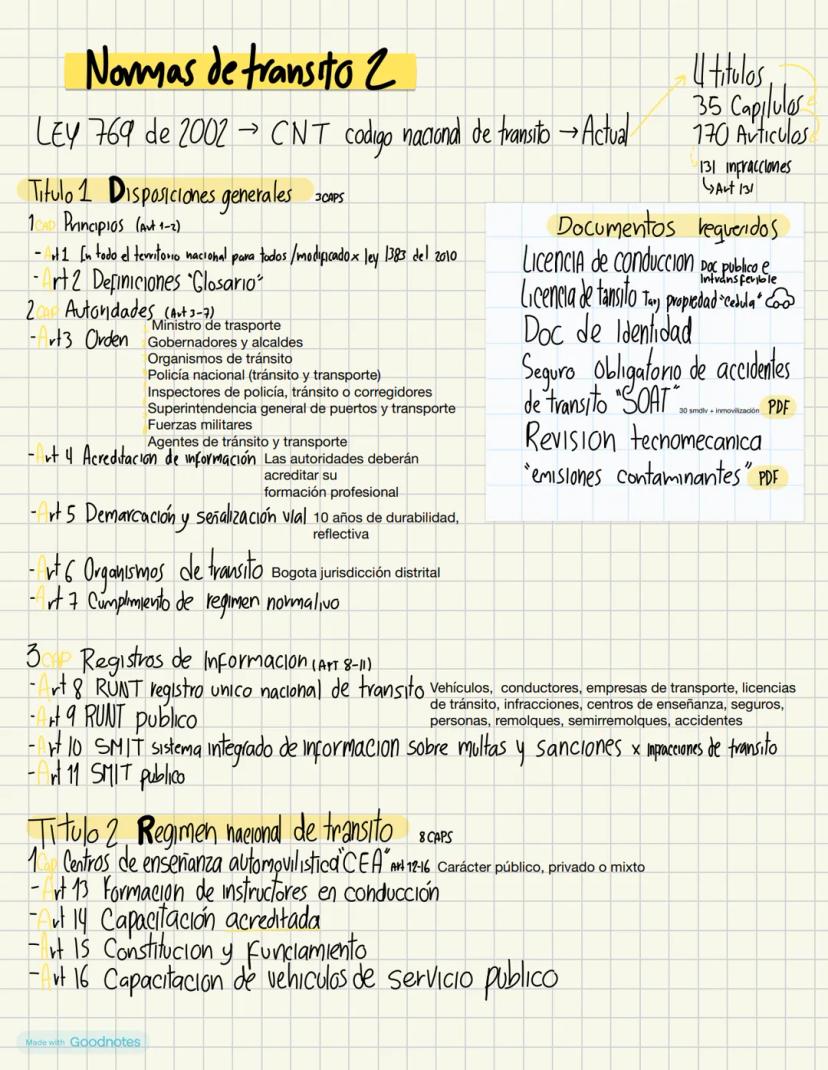 Normas de transito 2
LEY 769 de 2002 → CNT codigo nacional de transito → Actual
4 titulos
35 Capilulos
170 Articulos
131 infracciones
↳Art 131
Titulo 1 Disposiciones generales 3CAPS
1CAP Principios (Art 1-2)
-Art 1 En todo el territorio nacional para todos /modificado x ley 1383 del 2010
-Art 2 Definiciones "Glosario"
2CAP Autoridades (Art 3-7)
-Art3 Orden
Ministro de trasporte
Gobernadores y alcaldes
Organismos de tránsito
Policía nacional (tránsito y transporte)
Inspectores de policía, tránsito o corregidores
Superintendencia general de puertos y transporte
Fuerzas militares
Agentes de tránsito y transporte
-Art 4 Acreditacion de información Las autoridades deberán
acreditar su
formación profesional
-Art 5 Demarcación y señalización vial 10 años de durabilidad,
reflectiva
-Art 6 Organismos de transito Bogota jurisdicción distrital
-Art 7 Cumplimiento de regimen normativo
Documentos requeridos
Licencia de conduccion Doc publico e
intransferible
Licencia de tansito Tarj propiedad "cedula"
Doc de Identidad
Seguro Obligatorio de accidentes
de transito "SOAT" 30 smdlv + inmovilización PDF
Revision tecnomecanica
"emisiones contaminantes" PDF
3CAP Registros de Informacion (ART 8-11)
-Art 8 RUNT registro unico nacional de transito Vehículos, conductores, empresas de transporte, licencias
de tránsito, infracciones, centros de enseñanza, seguros,
personas, remolques, semirremolques, accidentes
-Art 9 RUNT publico
-Art 10 SMIT sistema integrado de informacion sobre multas y sanciones x infracciones de transito
-Art 11 SMIT publico
Titulo 2 Regimen nacional de transito 8 CAPS
1Cap Centros de enseñanza automovilistica "CEA" Art 12-16 Carácter público, privado o mixto
-Art 13 Formacion de instructores en conducción
-Art 14 Capacitación acreditada
-Art 15 Constitucion y Funciamiento
-Art 16 Capacitacion de vehiculos de servicio publico
Made with Goodnotes